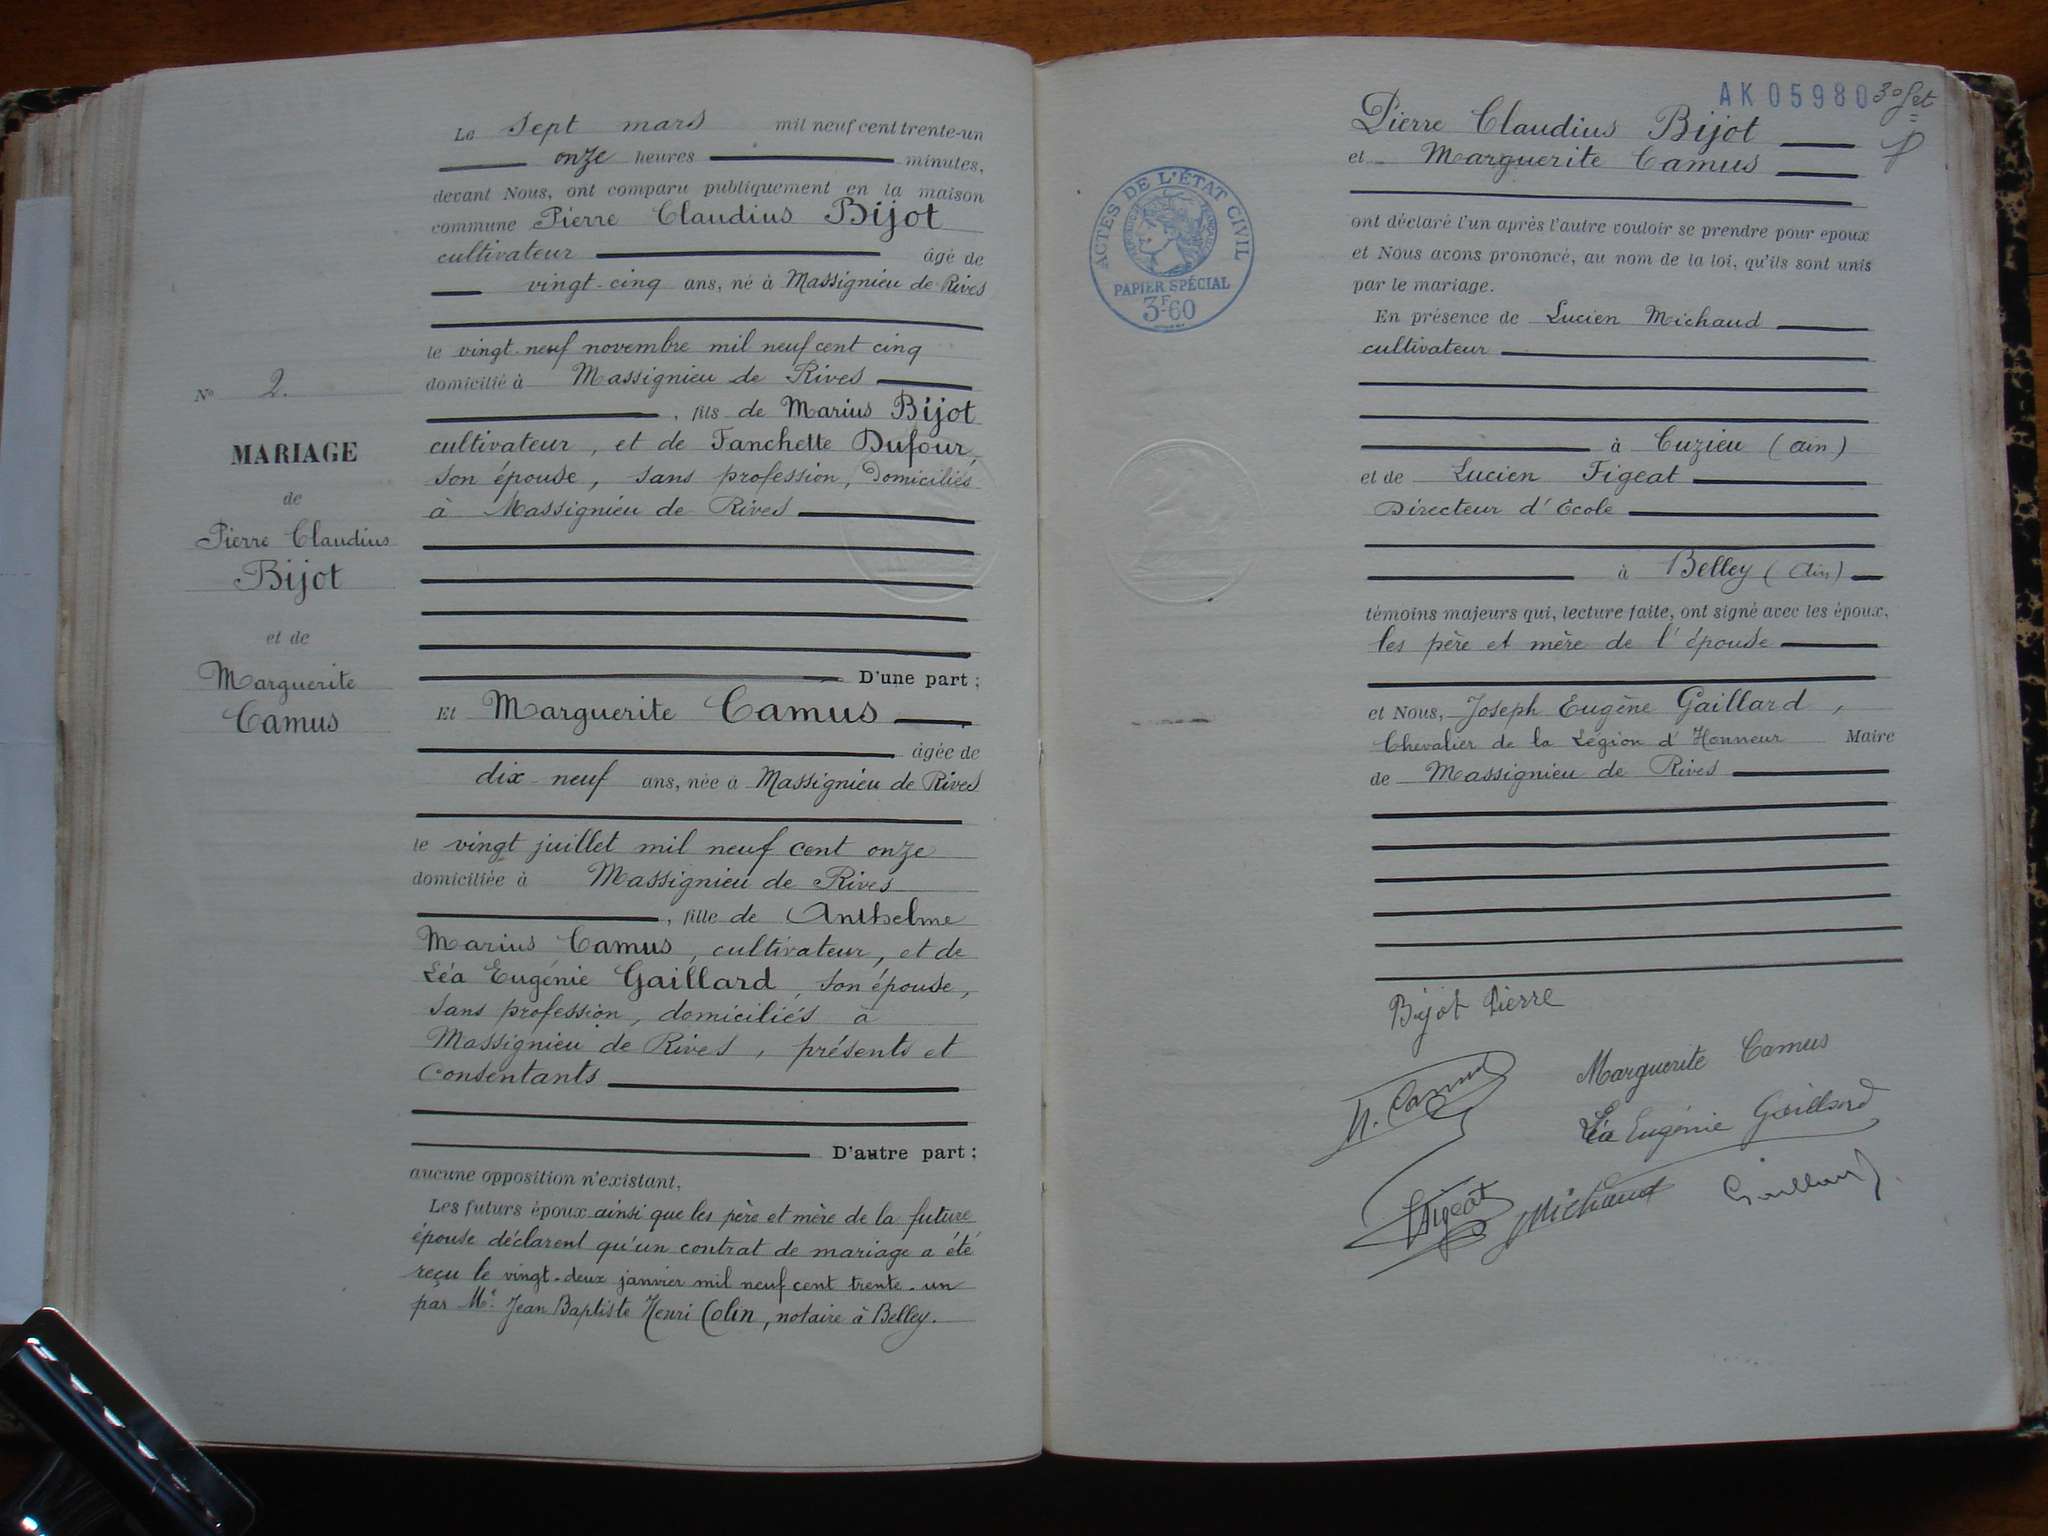 Nº 2.
MARIAGE
de
Pierre Claudius
Bijot
et de
Marguerite
Camus
Le Sept mars mil neuf cent trente-un
onze heures minutes,
devant Nous, ont comparu publiquement en la maison
commune Pierre Claudius Bijot
cultivateur âgé de
vingt-cinq ans, né à Massignieu de Rives
le vingt-neuf novembre mil neuf cent cinq
domicilié à Massignieu de Rives
, fils de Marius Bijot
cultivateur, et de Fanchette Dufour,
son épouse, sans profession, Domiciliés
à Massignieu de Rives
D'une part ;
Et Marguerite Camus
âgée de
dix-neuf ans, née à Massignieu de Rives
le vingt juillet mil neuf cent onze
domiciliée à Massignieu de Rives
, fille de Anthelme
Marius Camus, cultivateur, et de
Léa Eugénie Gaillard, son épouse,
sans profession, domiciliés à
Massignieu de Rives, présents et
Consentants
D'autre part ;
aucune opposition n'existant.
Les futurs époux ainsi que les père et mère de la future
épouse déclarent qu'un contrat de mariage a été
reçu le vingt-deux janvier mil neuf cent trente-un
par Me. Jean Baptiste Henri Colin, notaire à Belley.
AK 05980
Pierre Claudius Bijot
et Marguerite Camus
ACTES DE L'ÉTAT CIVIL
PAPIER SPÉCIAL
3F60
ont déclaré l'un après l'autre vouloir se prendre pour époux
et Nous avons prononcé, au nom de la loi, qu'ils sont unis
par le mariage.
En présence de Lucien Michaud
cultivateur
à Cuzieu (ain)
et de Lucien Figeat
Directeur d'Ecole
à Belley (ain)
témoins majeurs qui, lecture faite, ont signé avec les époux,
les père et mère de l'épouse
et Nous, Joseph Eugène Gaillard,
Chevalier de la Légion d'Honneur Maire
de Massignieu de Rives
Bijot Pierre
Marguerite Camus
M. Camus
Léa Eugénie Gaillard
Figeat Michaud Gaillard